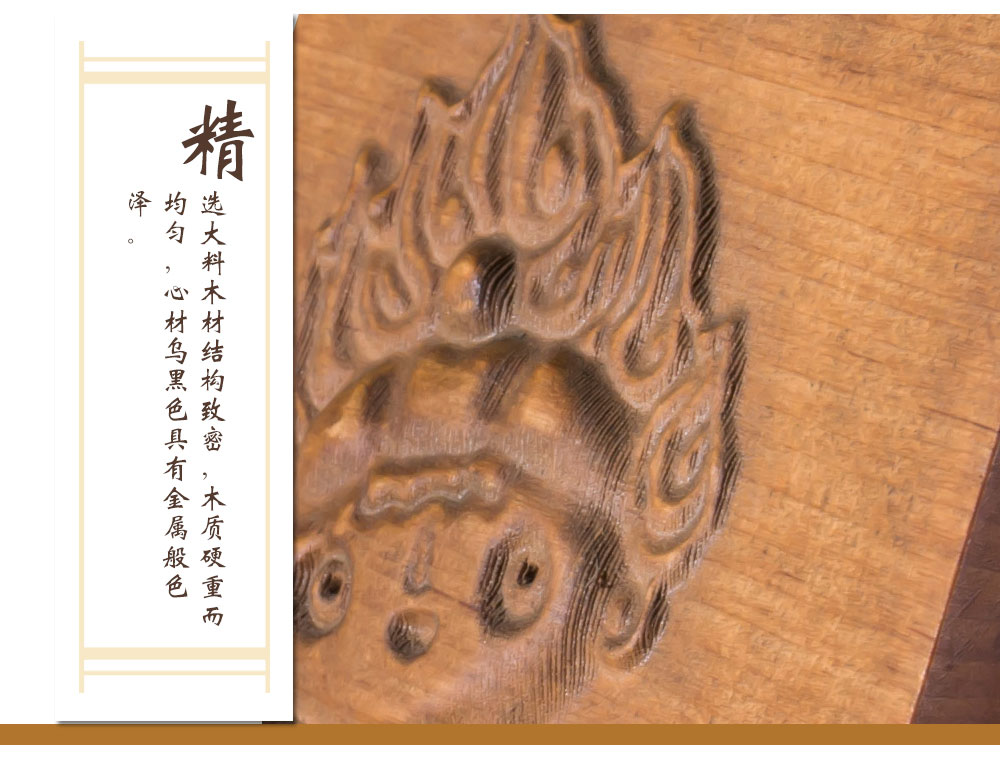 精
选大料木材结构致密,木质硬重而
均匀,心材乌黑色具有金属般色
泽。